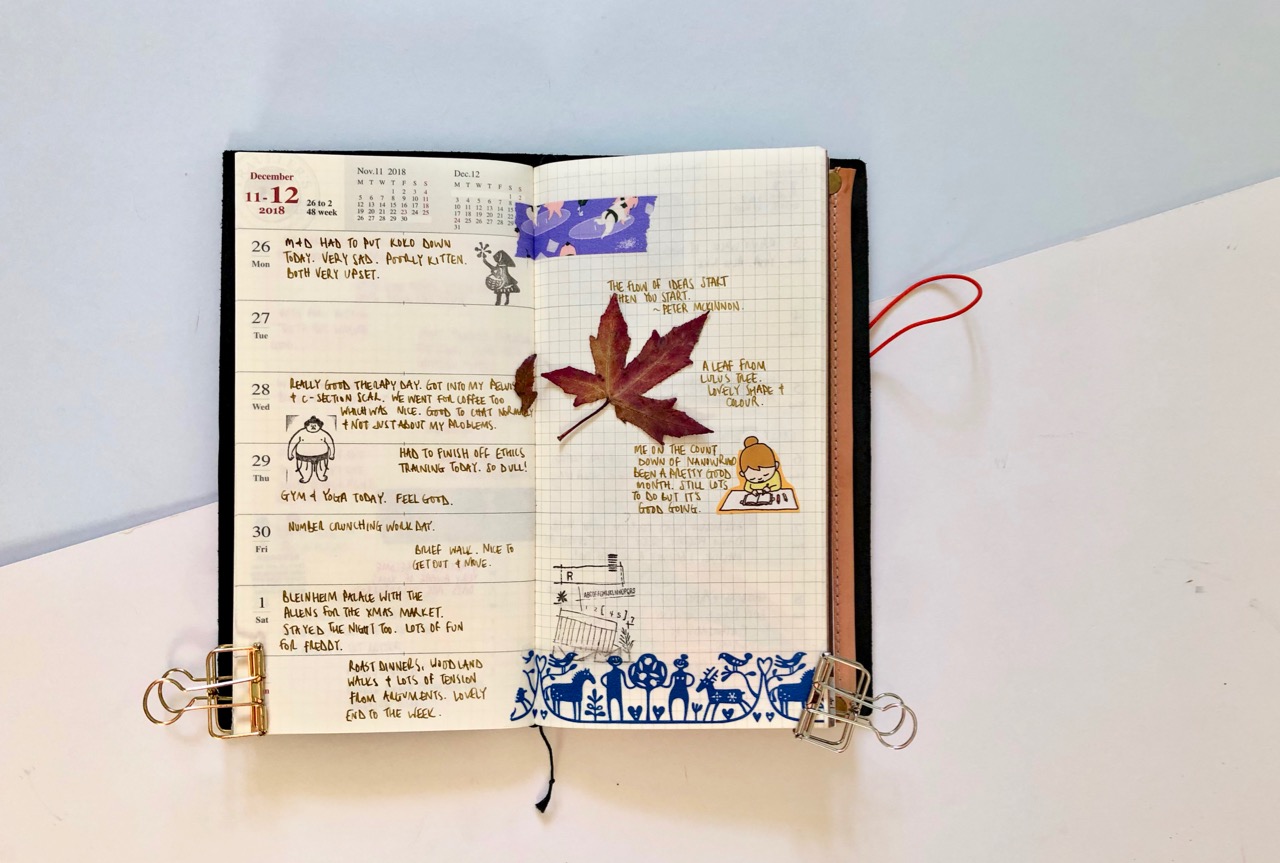 December
11-12
2018
26 to 2
48 week
Nov.11 2018
M T W T F S S
1 2 3 4
5 6 7 8 9 10 11
12 13 14 15 16 17 18
19 20 21 22 23 24 25
26 27 28 29 30
Dec.12
M T W T F S S
1 2
3 4 5 6 7 8 9
10 11 12 13 14 15 16
17 18 19 20 21 22 23
24 25 26 27 28 29 30
31
26
Mon
M+D HAD TO PUT KOKO DOWN
TODAY. VERY SAD. POORLY KITTEN.
BOTH VERY UPSET.
27
Tue
28
Wed
REALLY GOOD THERAPY DAY. GOT INTO MY PELVIS
+ C-SECTION SCAR. WE WENT FOR COFFEE TOO
WHICH WAS NICE. GOOD TO CHAT NORMALLY
+ NOT JUST ABOUT MY PROBLEMS.
29
Thu
HAD TO FINISH OFF ETHICS
TRAINING TODAY. SO DULL!
GYM + YOGA TODAY. FEEL GOOD.
30
Fri
NUMBER CRUNCHING WORK DAY.
BRIEF WALK. NICE TO
GET OUT + MOVE.
1
Sat
BLEINHEIM PALACE WITH THE
ALLENS FOR THE XMAS MARKET.
STAYED THE NIGHT TOO. LOTS OF FUN
FOR FREDDY.
ROAST DINNERS, WOODLAND
WALKS + LOTS OF TENSION
FROM ARGUMENTS. LOVELY
END TO THE WEEK.
THE FLOW OF IDEAS START
WHEN YOU START.
~ PETER MCKINNON.
A LEAF FROM
LULUS TREE.
LOVELY SHAPE +
COLOUR.
ME ON THE COUNT
DOWN OF NANOWRIMO
BEEN A PRETTY GOOD
MONTH. STILL LOTS
TO DO BUT IT'S
GOOD GOING.
R